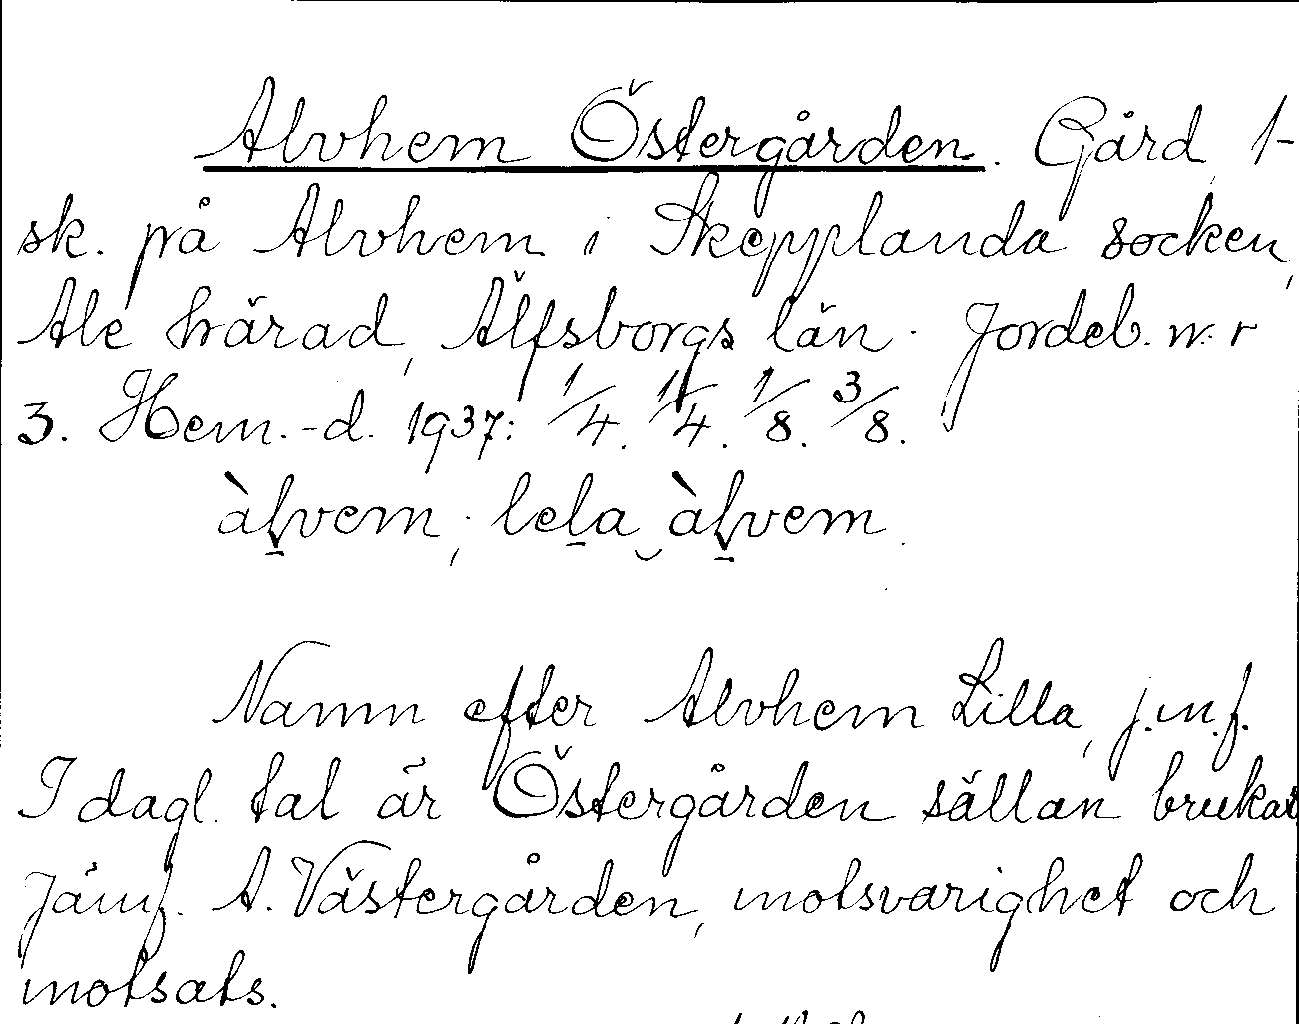 Alvhem Östergården. Gård, 1-
sk. på Alvhem i Skepplanda socken,
Ale härad, Älfsborgs län. Jordeb. n:r
3. Hem.-d. 1937: 1/4. 1/4. 1/8. 3/8.
àḷvem; leḷa‿àḷvem.
Namn efter Alvhem Lilla, j.m.f.
I dagl. tal är Östergården sällan brukat
Jämf. A. Västergården, motsvarighet och
motsats.